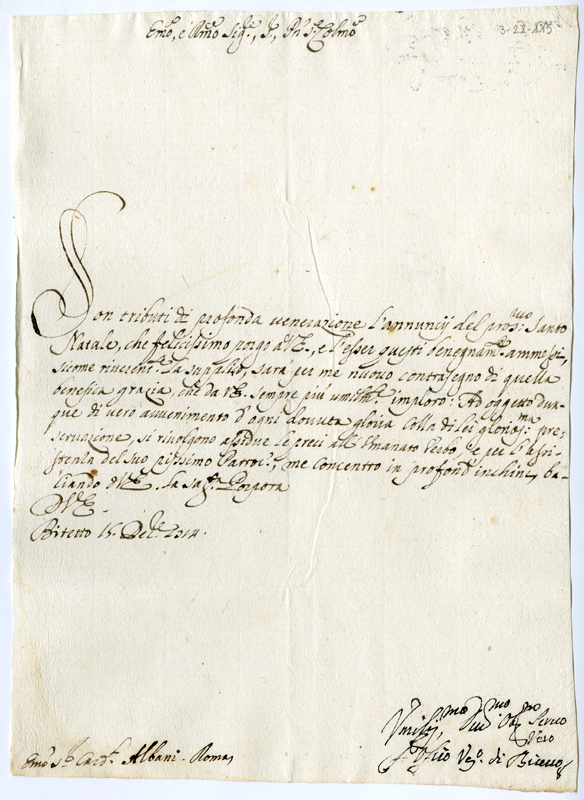 Emo, e Rmo Sigr., Sr., Pn Sr. Colmo
3-22-1715
Son tributi di profonda venerazione l'annunij del prossmo Santo
Natale, che felicissimo porgo a V.E., e l'esser questi benegnante. ammessi,
sicome riverente. La supplico, sarà per me nuovo contrasegno di quella
benefica grazia, che da V.E. sempre più umilte. imploro: Ad oggetto dun-
que di vero avvenimento d'ogni dovuta gloria colla di lei gloriosma. pre-
servazione, si rivolgono assidue le preci all' Umanato Verbo, e per l'assi-
stenza del suo pissimo Patroc.o, me concentro in profond' inchini, ba-
ciando a V.E. la sagra. Porpora
D. V.E.
Bitetto 15. Xbre. 1714.
Emo Sr. Cardl. Albani. Roma
Umiliss.mo Div.mo Obl.mo Servo
Vero
Veso. di Bitetto